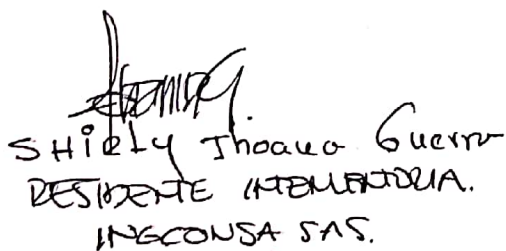 SHIRLY Jhoana Guerra
RESIDENTE INTERVENTORIA.
INGCONSA SAS.